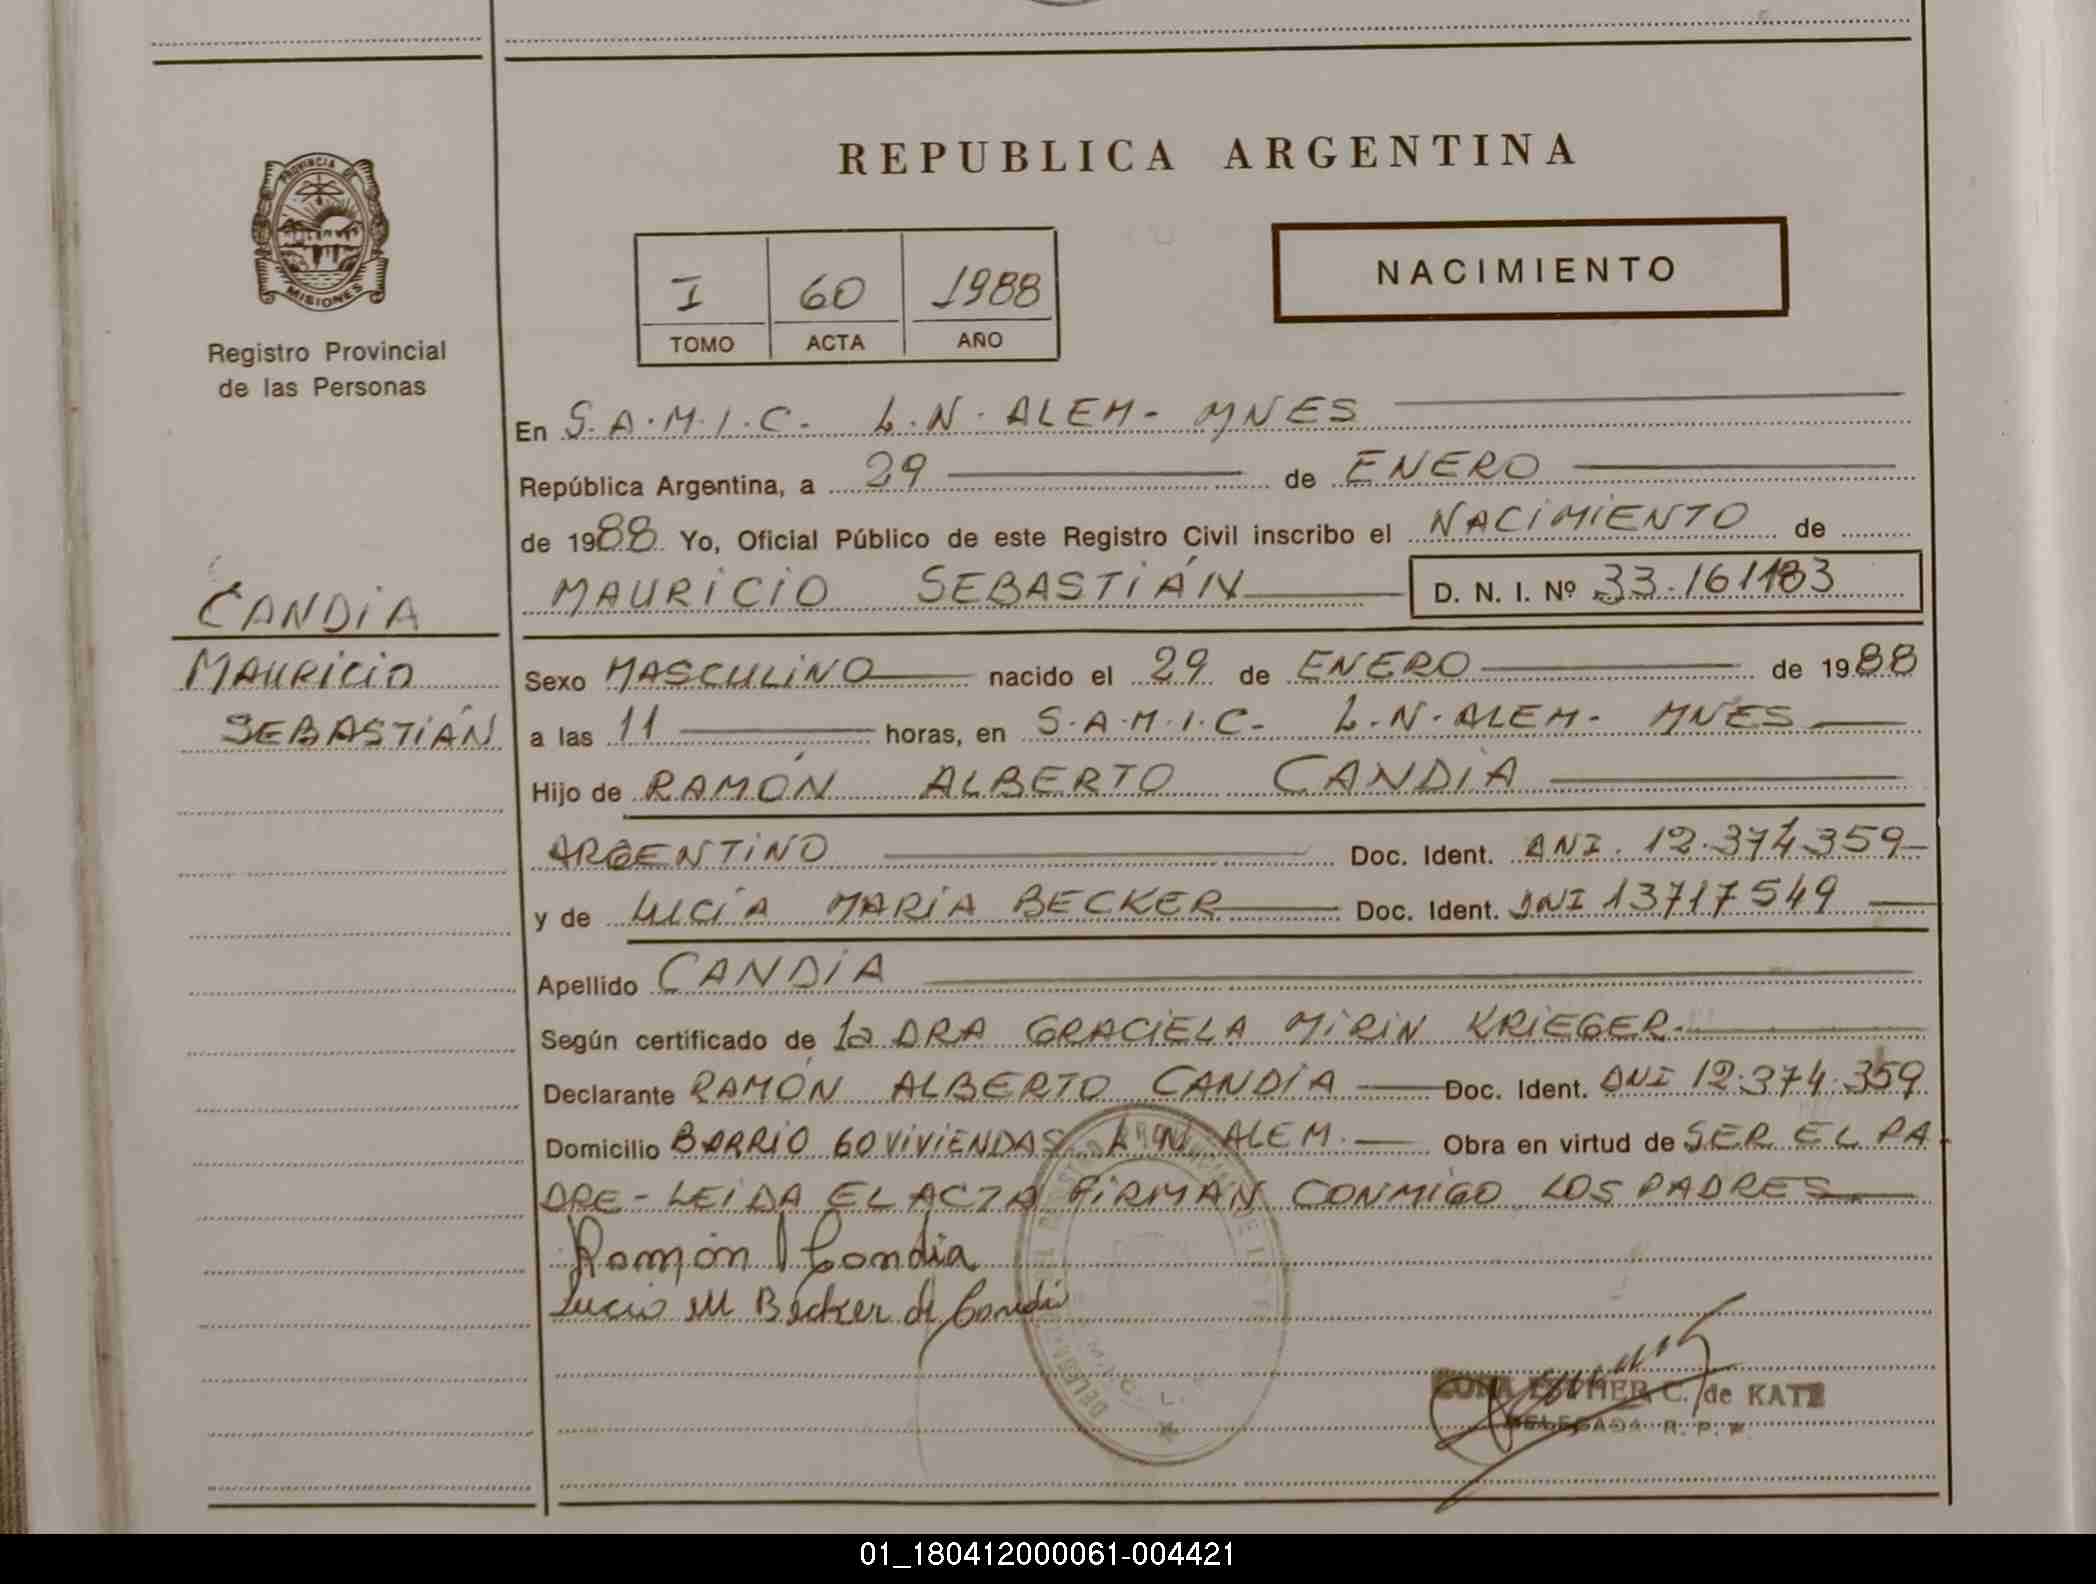 REPUBLICA ARGENTINA
PROVINCIA DE
MISIONES
Registro Provincial
de las Personas
I 60 1988
TOMO ACTA AÑO
NACIMIENTO
En S.A.M.I.C. L.N. ALEM- MNES
República Argentina, a 29 de ENERO
de 1988 Yo, Oficial Público de este Registro Civil inscribo el NACIMIENTO de
MAURICIO SEBASTIÁN D. N. I. Nº 33.161183
CANDIA
MAURICIO
SEBASTIÁN
Sexo MASCULINO nacido el 29 de ENERO de 1988
a las 11 horas, en S.A.M.I.C- L.N. ALEM- MNES
Hijo de RAMÓN ALBERTO CANDIA
ARGENTINO Doc. Ident. DNI. 12.374.359
y de LUCÍA MARIA BECKER Doc. Ident. DNI 13717549
Apellido CANDIA
Según certificado de la DRA GRACIELA MIRIN KRIEGER.
Declarante RAMÓN ALBERTO CANDIA Doc. Ident. DNI 12.374.359
Domicilio BARRIO 60 VIVIENDAS L.N. ALEM. Obra en virtud de SER EL PA
DRE- LEIDA EL ACTA FIRMAN CONMIGO LOS PADRES
Ramón Candia
Lucia M Becker de Candia
ESTHER C. de KATZ
DELEGADA R. P. P.
01_180412000061-004421